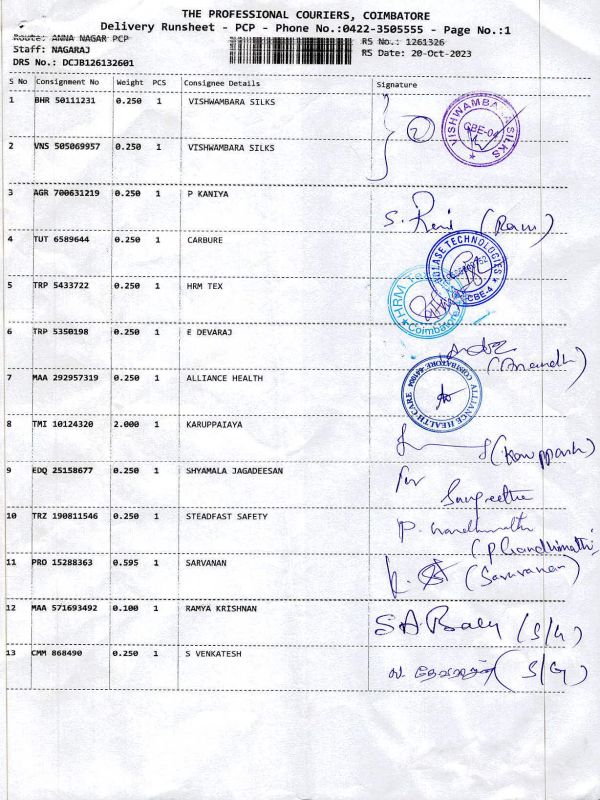 THE PROFESSIONAL COURIERS, COIMBATORE
Delivery Runsheet - PCP - Phone No.:0422-3505555 - Page No.:1
Route: ANNA NAGAR PCP
Staff: NAGARAJ
DRS No.: DCJB126132601
RS No.: 1261326
RS Date: 20-Oct-2023
S No Consignment No Weight PCS Consignee Details Signature
1 BHR 50111231 0.250 1 VISHWAMBARA SILKS
2 VNS 505069957 0.250 1 VISHWAMBARA SILKS
VISHWAMBARA SILKS
CBE-04
3 AGR 700631219 0.250 1 P KANIYA
(Ram)
4 TUT 6589644 0.250 1 CARBURE
TECHNOLOGIES
CBE-4
5 TRP 5433722 0.250 1 HRM TEX
HRM
Coimbatore
6 TRP 5350198 0.250 1 E DEVARAJ
(Anandh)
7 MAA 292957319 0.250 1 ALLIANCE HEALTH
ALLIANCE HEALTH CARE
COIMBATORE
8 TMI 10124320 2.000 1 KARUPPAIAYA
9 EDQ 25158677 0.250 1 SHYAMALA JAGADEESAN
for
Sangeetha
10 TRZ 190811546 0.250 1 STEADFAST SAFETY
(P Gandhimathi)
11 PRO 15288363 0.595 1 SARVANAN
(Saravanan)
12 MAA 571693492 0.100 1 RAMYA KRISHNAN
S.A. Babu (S/G)
13 CMM 868490 0.250 1 S VENKATESH
(S/G)